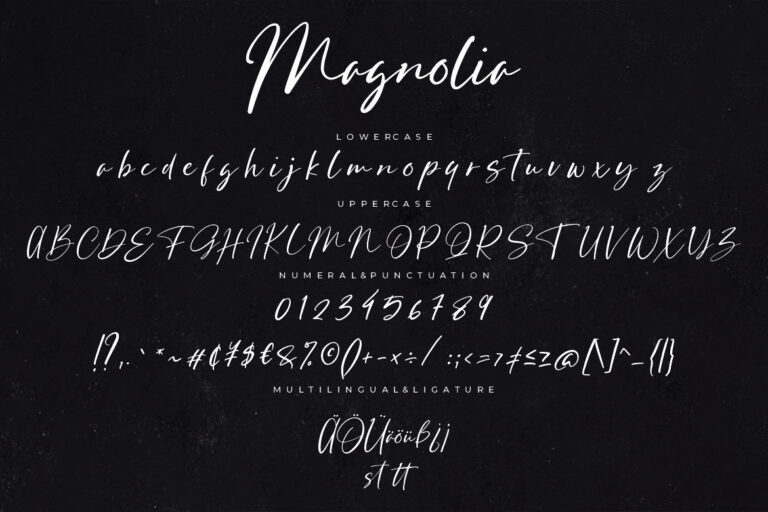 Magnolia
LOWERCASE
abcdefghijklmnopqrstuvwxyz
UPPERCASE
ABCDEFGHIKLMNOPQRSTUVWXYZ
NUMERAL&PUNCTUATION
0123456789
!?,.`*~#₵¥$€&%©()+-×÷/:;¡<=>≠≤≥@[\]^_{|}
MULTILINGUAL&LIGATURE
ÄÖÜäöüß¿¡
st tt